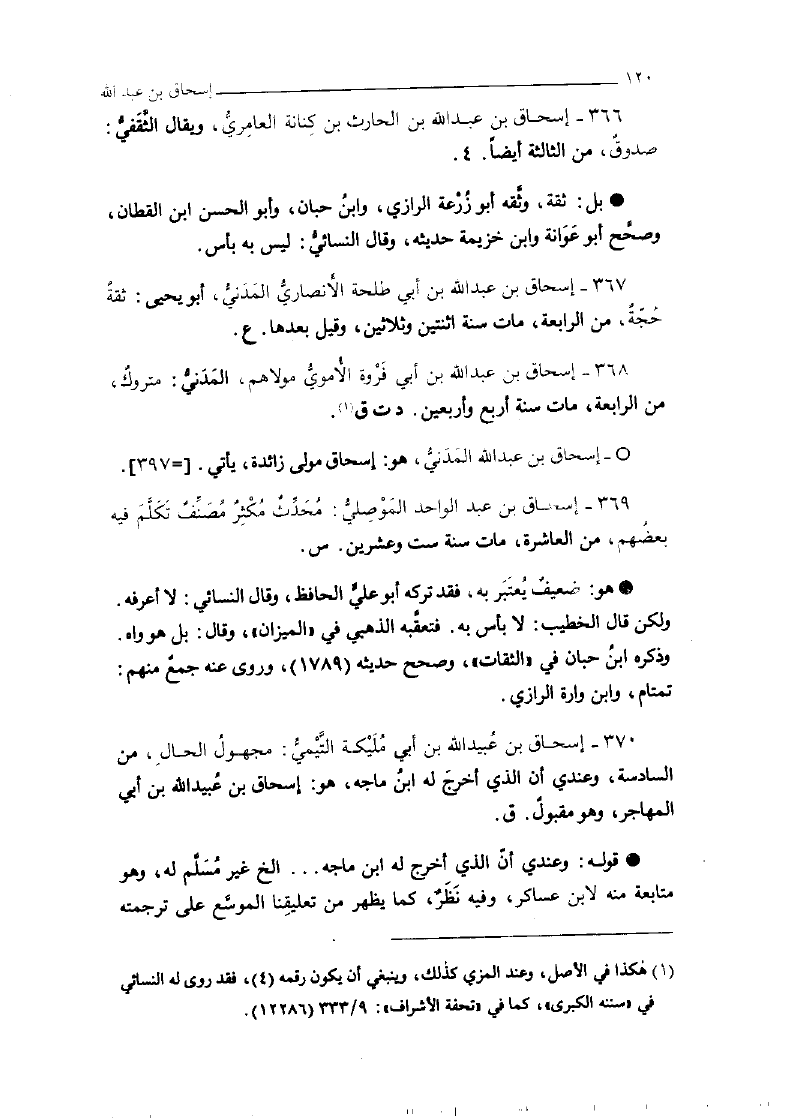 ١٢٠ إسحاق بن عبد الله
٣٦٦ ـ إسحـاق بن عبـدالله بن الحارث بن كِنانة العامِريُّ، ويقال الثَّقَفيُّ:
صدوقٌ، من الثالثة أيضاً. ٤.
● بل: ثقة، وثَّقه أبو زُرْعة الرازي، وابنُ حبان، وأبو الحسن ابن القطان،
وصحَّح أبو عَوَانة وابن خزيمة حديثه، وقال النسائيُّ: ليس به بأس.
٣٦٧ ـ إسحاق بن عبدالله بن أبي طلحة الأنصاريُّ المَدَنيُّ، أبو يحيى: ثقةٌ
حُجّةٌ، من الرابعة، مات سنة اثنتين وثلاثين، وقيل بعدها. ع.
٣٦٨ ـ إسحاق بن عبدالله بن أبي فَرْوة الأُمويُّ مولاهم، المَدَنيُّ: متروكٌ،
من الرابعة، مات سنة أربع وأربعين. د ت ق(١).
○ ـ إسحاق بن عبدالله المَدَنيُّ، هو: إسحاق مولى زائدة، يأتي. [=٣٩٧].
٣٦٩ ـ إسحـاق بن عبد الواحد المَوْصِليُّ: مُحَدِّثٌ مُكْثِرٌ مُصَنِّفٌ تَكَلَّمَ فيه
بعضُهم، من العاشرة، مات سنة ست وعشرين. س.
● هو: ضعيفٌ يُعتَبَر به، فقد تركه أبو عليٍّ الحافظ، وقال النسائي: لا أعرفه.
ولكن قال الخطيب: لا بأس به. فتعقَّبه الذهبي في «الميزان»، وقال: بل هو واه.
وذكره ابنُ حبان في «الثقات»، وصحح حديثه (١٧٨٩)، وروى عنه جمعٌ منهم:
تمتام، وابن وارة الرازي.
٣٧٠ ـ إسحـاق بن عُبيدالله بن أبي مُلَيْكـة التَّيْميُّ: مجهـولُ الحـالِ، من
السادسة، وعندي أن الذي أخرجَ له ابنُ ماجه، هو: إسحاق بن عُبيدالله بن أبي
المهاجر، وهو مقبولٌ. ق.
● قولـه: وعندي أنّ الذي أخرج له ابن ماجه... الخ غير مُسَلّم له، وهو
متابعة منه لابن عساكر، وفيه نَظَرٌ، كما يظهر من تعليقِنا الموسَّع على ترجمته
(١) هٰكذا في الأصل، وعند المزي كذلك، وينبغي أن يكون رقمه (٤)، فقد روى له النسائي
في «سننه الكبرى»، كما في «تحفة الأشراف»: ٣٣٣/٩ (١٢٢٨٦).